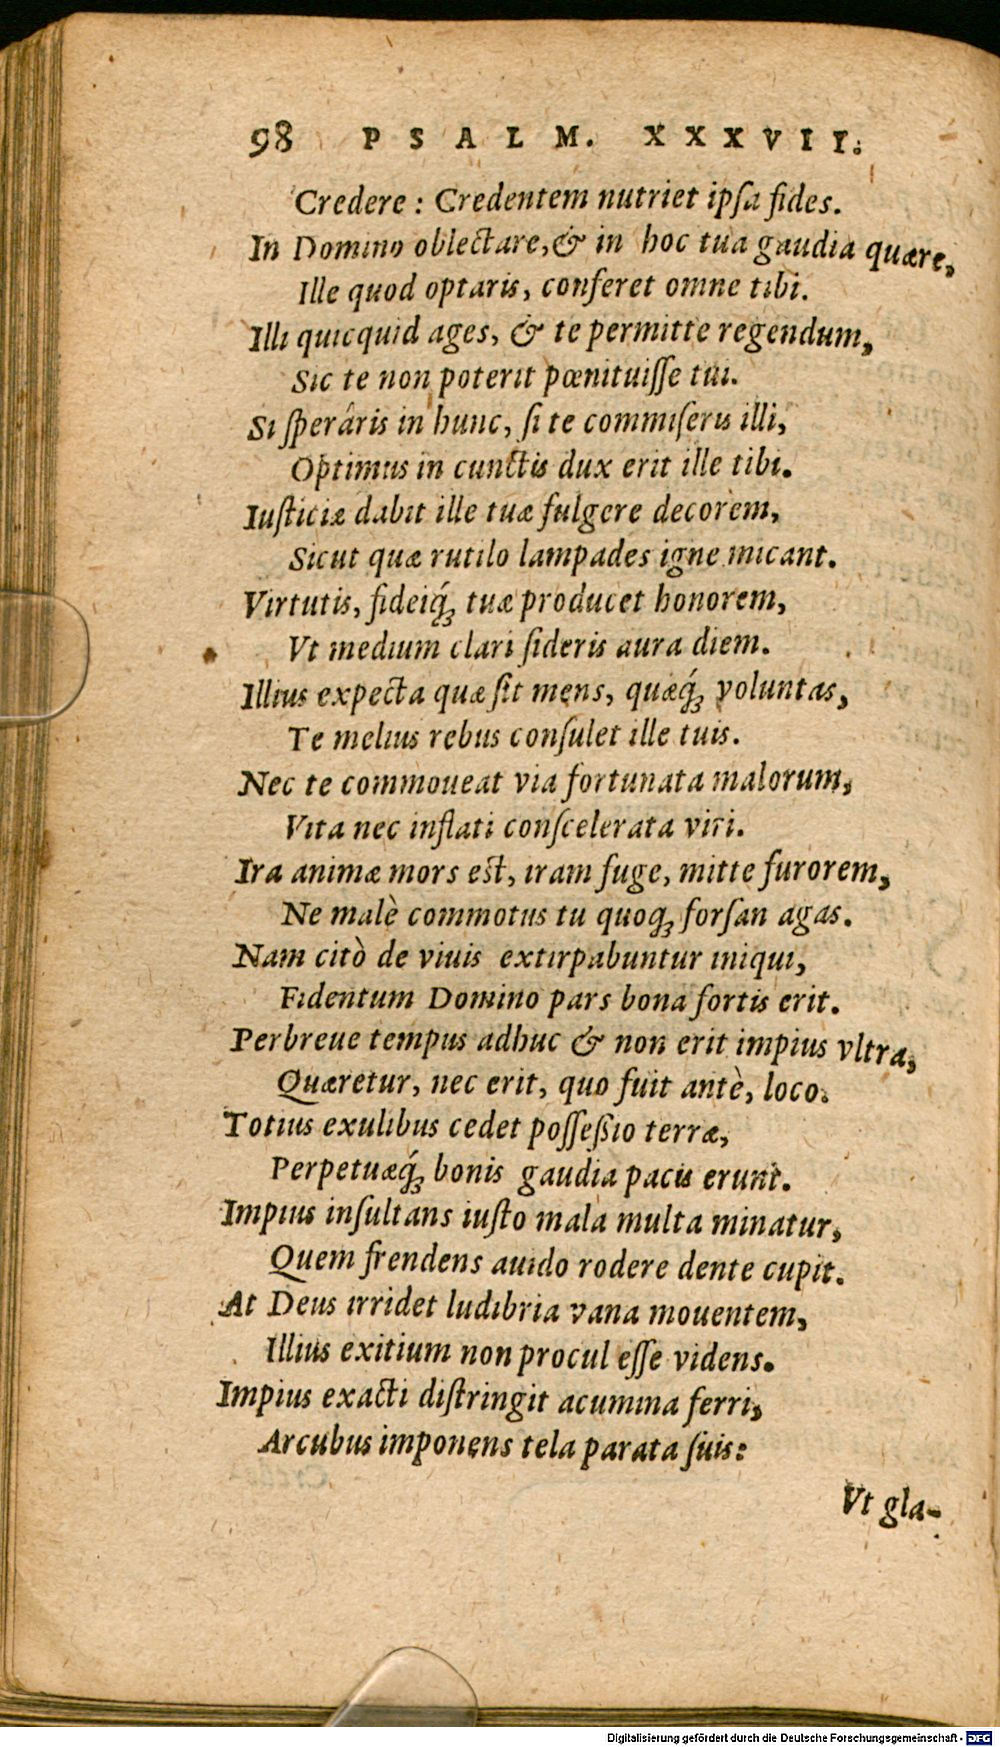 98 PSALM. XXXVII.
Credere : Credentem nutriet ipſa fides.
In Domino oblectare, & in hoc tua gaudia quære,
Ille quod optaris, conferet omne tibi.
Illi quicquid ages, & te permitte regendum,
Sic te non poterit pœnituiſſe tui.
Si ſperâris in hunc, ſi te commiſeris illi,
Optimus in cunctis dux erit ille tibi.
Iuſticiæ dabit ille tuæ fulgere decorem,
Sicut quæ rutilo lampades igne micant.
Virtutis, fideiq́ꝫ tuæ producet honorem,
Vt medium clari ſideris aura diem.
Illius expecta quæ ſit mens, quæq́ꝫ voluntas,
Te melius rebus conſulet ille tuis.
Nec te commoueat via fortunata malorum,
Vita nec inflati conſcelerata viri.
Ira animæ mors eſt, iram fuge, mitte furorem,
Ne malè commotus tu quoqꝫ forſan agas.
Nam citò de viuis extirpabuntur iniqui,
Fidentum Domino pars bona fortis erit.
Perbreue tempus adhuc & non erit impius vltra,
Quæretur, nec erit, quo fuit antè, loco.
Totius exulibus cedet poſſeßio terræ,
Perpetuæq́ꝫ bonis gaudia pacis erunt.
Impius inſultans iuſto mala multa minatur,
Quem frendens auido rodere dente cupit.
At Deus irridet ludibria vana mouentem,
Illius exitium non procul eſſe videns.
Impius exacti diſtringit acumina ferri,
Arcubus imponens tela parata ſuis:
Vt gla-
Digitalisierung gefördert durch die Deutsche Forschungsgemeinschaft - DFG